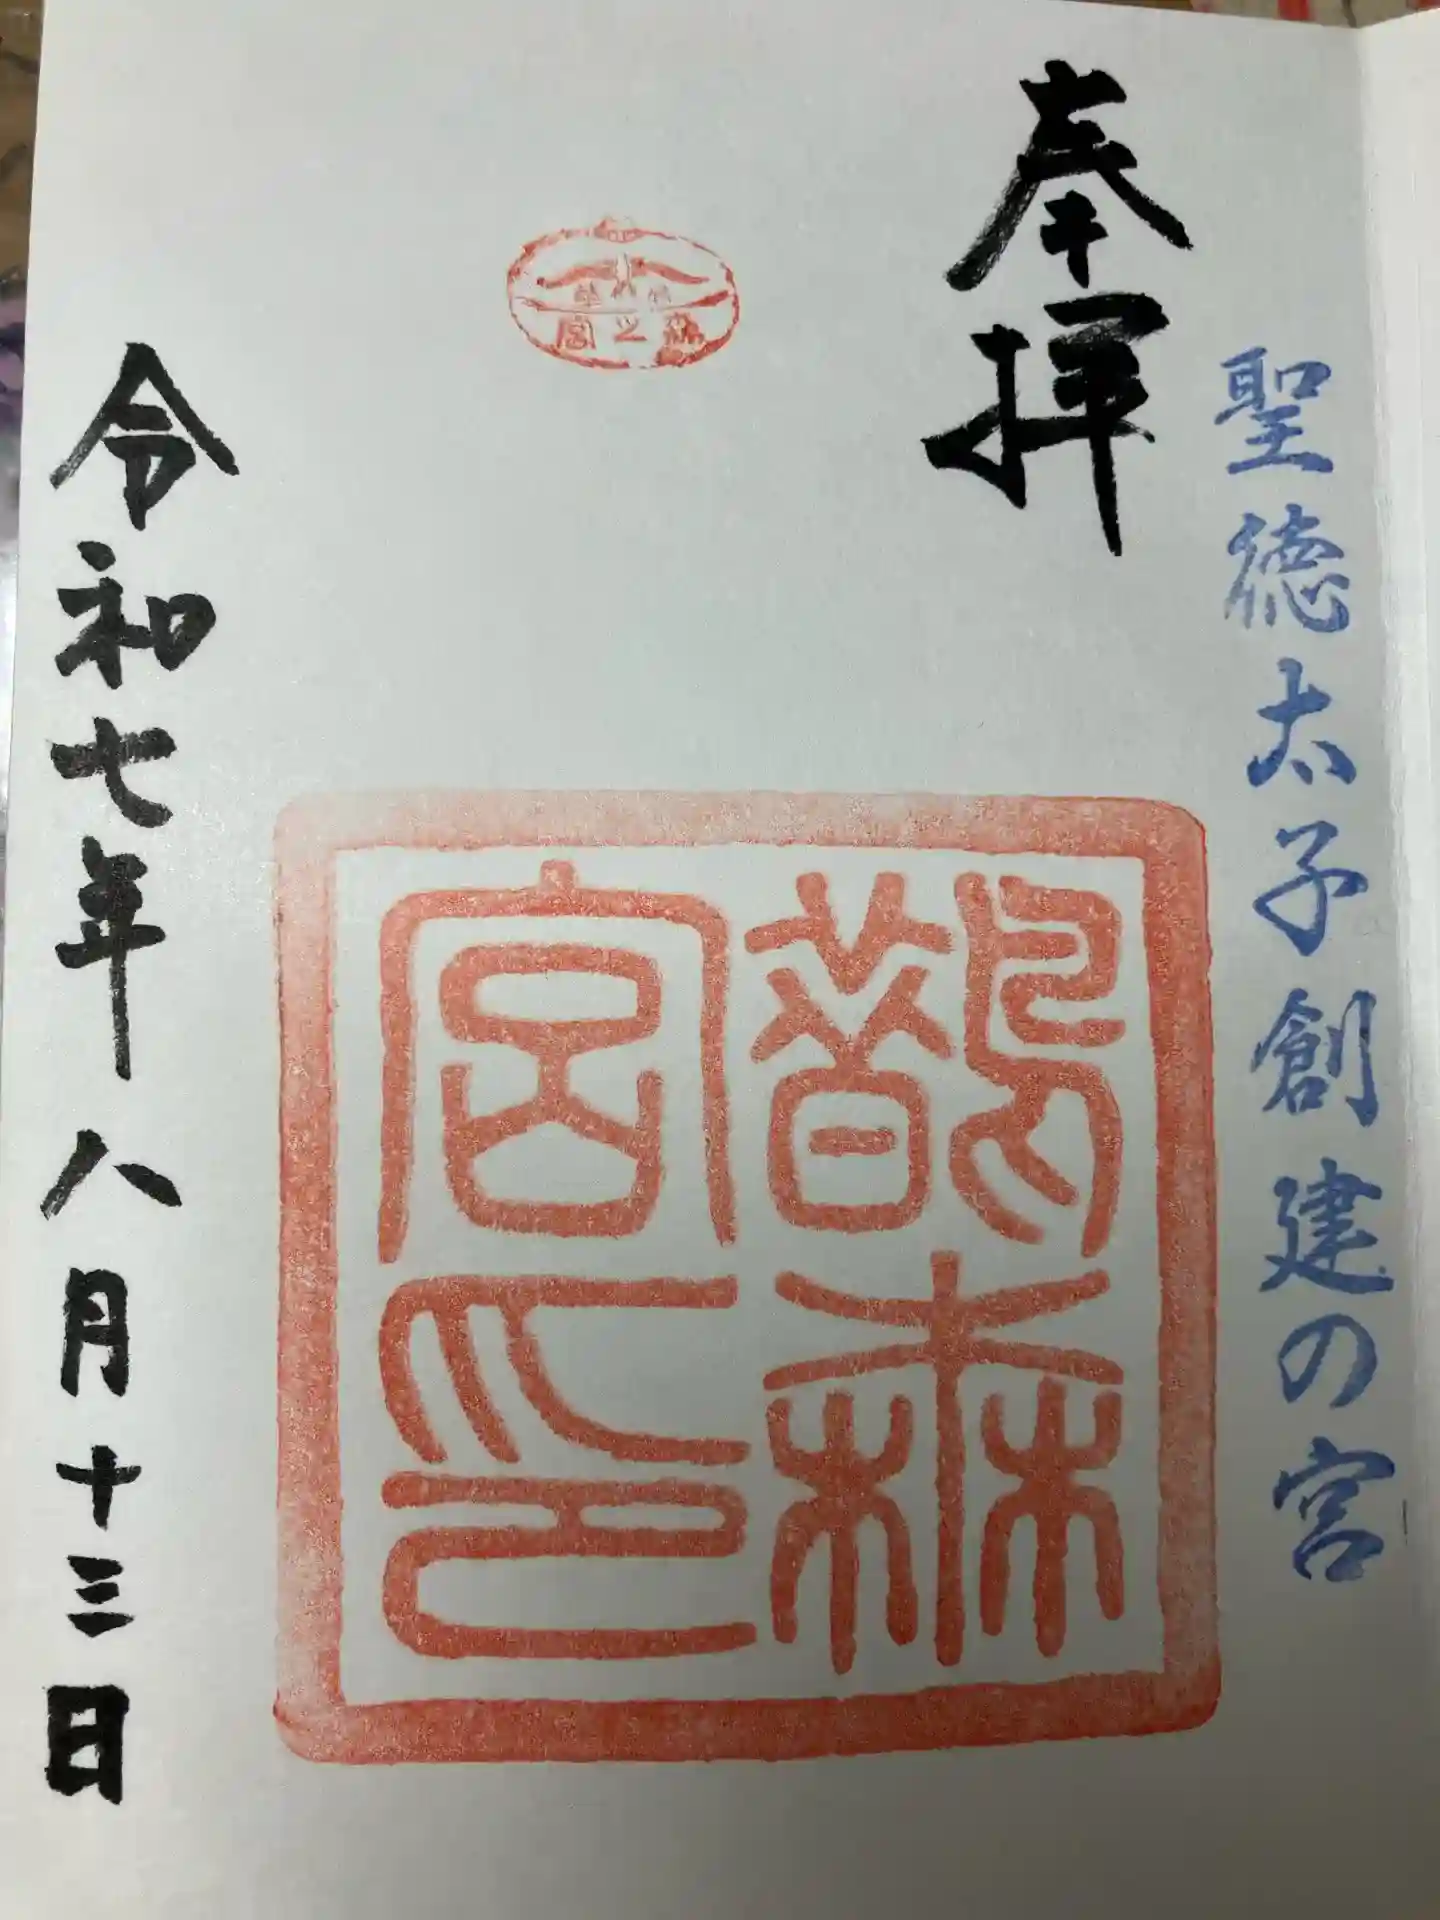 聖徳太子創建の宮
奉拝
森之宮
鵲森
宮印
令和七年八月十三日